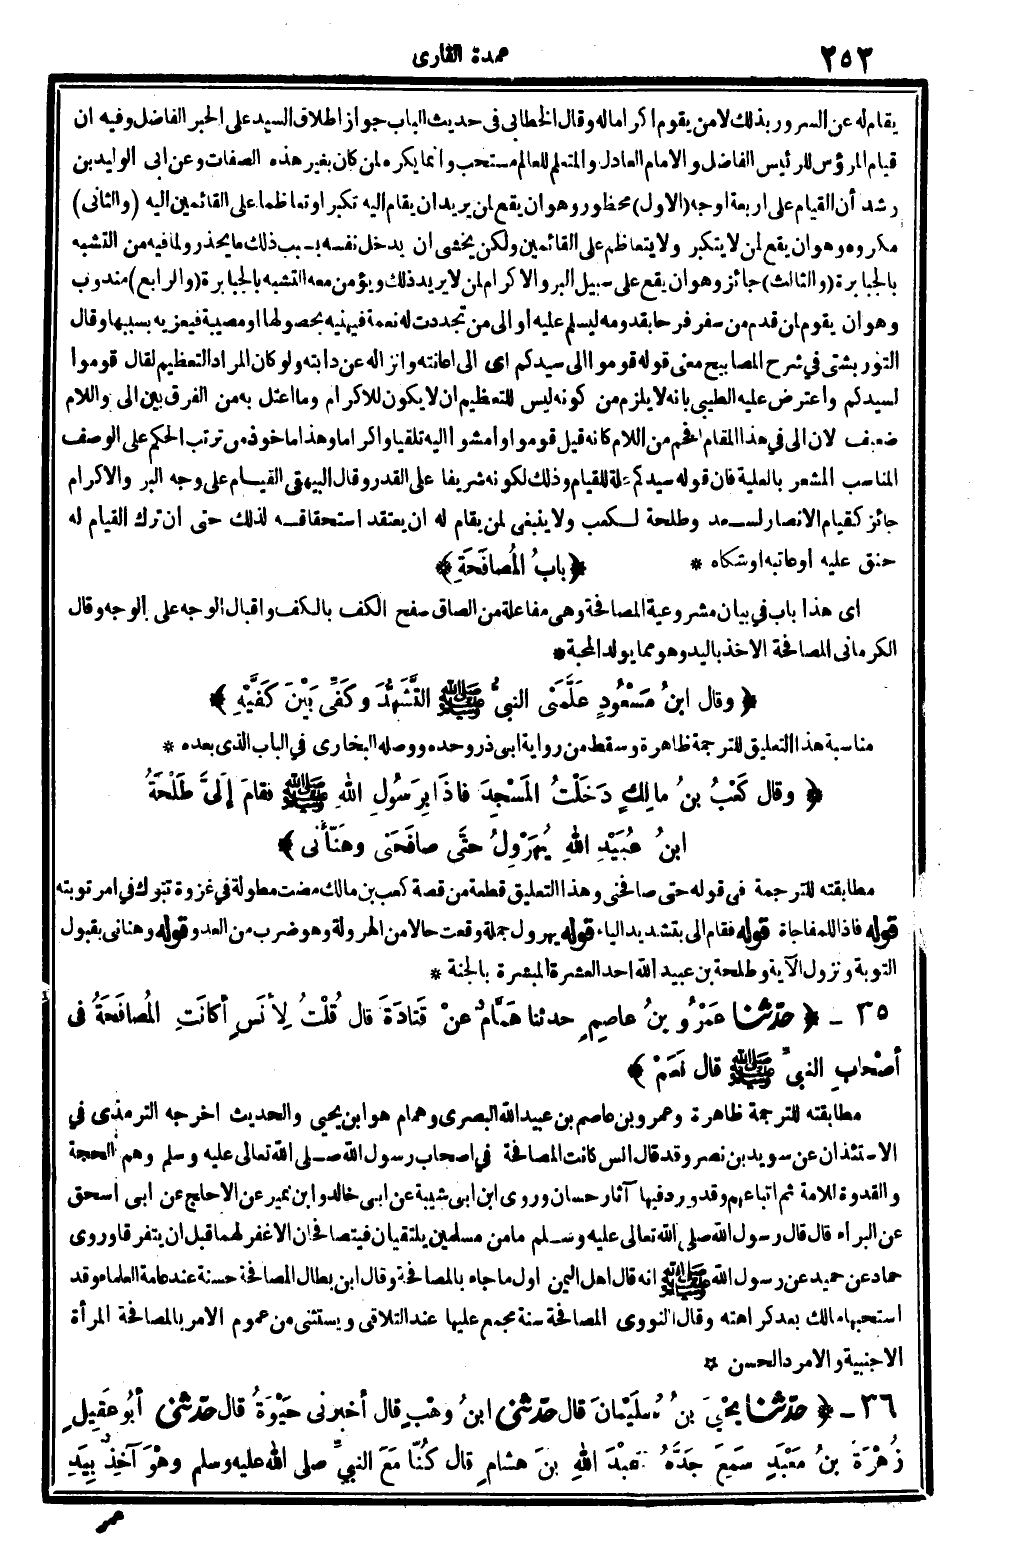 ٢٥٢ عمدة القارى
يقام له عن السرور بذلك لا من يقوم اكراما له وقال الخطابى فى حديث الباب جواز اطلاق السيد على الحبر الفاضل وفيه ان
قيام المرؤس للرئيس الفاضل والامام العادل والمتعلم للعالم مستحب وانما يكره لمن كان بغير هذه الصفات وعن ابى الوليد بن
رشد أن القيام على اربعة اوجه (الاول) محظور وهو ان يقع لمن يريد ان يقام اليه تكبرا وتعاظما على القائمين اليه (والثانى)
مكروه وهو ان يقع لمن لا يتكبر ولا يتعاظم على القائمين ولكن يخشى ان يدخل نفسه بسبب ذلك ما يحذر ولما فيه من التشبه
بالجبابرة (والثالث) جائز وهو ان يقع على سبيل البر والاكرام لمن لا يريد ذلك ويؤمن معه التشبه بالجبابرة (والرابع) مندوب
وهو ان يقوم لمن قدم من سفر فرحا بقدومه ليسلم عليه او الى من تجددت له نعمة فيهنيه بحصولها او مصيبة فيعزيه بسببها وقال
التوربشتى في شرح المصابيح معنى قوله قوموا الى سيدكم اى الى اعانته وانزاله عن دابته ولو كان المراد التعظيم لقال قوموا
لسيدكم واعترض عليه الطيبى بانه لا يلزم من كونه ليس للتعظيم ان لا يكون للاكرام وما اعتل به من الفرق بين الى واللام
ضعيف لان الى في هذا المقام افخم من اللام كانه قيل قوموا وامشوا اليه تلقيا واكراما وهذا ماخوذ من ترتب الحكم على الوصف
المناسب المشعر بالعلية فان قوله سيدكم علة للقيام وذلك لكونه شريفا على القدر وقال البيهقى القيام على وجه البر والاكرام
جائز كقيام الانصار لسعد وطلحة لكعب ولا ينبغى لمن يقام له ان يعتقد استحقاقه لذلك حتى ان ترك القيام له
حنق عليه اوعاتبه اوشكاه *
﴿ بابُ المُصافَحَةِ ﴾
اى هذا باب في بيان مشروعية المصافحة وهى مفاعلة من الصاق صفح الكف بالكف واقبال الوجه على الوجه وقال
الكرمانى المصافحة الاخذ باليد وهو مما يولد المحبة *
﴿ وقال ابنُ مَسْعُودٍ عَلَّمَنى النبىُّ ﷺ التَّشَهُّدَ وكَفِّى بَيْنَ كَفَّيْهِ ﴾
مناسبة هذا التعليق للترجمة ظاهرة وسقط من رواية ابى ذر وحده ووصله البخارى في الباب الذى بعده *
﴿ وقال كَعْبُ بنُ مالِكٍ دَخَلْتُ المَسْجِدَ فاذَا بِرَسُولِ اللهِ ﷺ فقامَ إلَىَّ طَلْحَةُ
ابنُ عُبَيْدِ اللهِ يُهَرْوِلُ حتَّى صافَحَنى وهَنَّأنى ﴾
مطابقته للترجمة فى قوله حتى صافحنى وهذا التعليق قطعة من قصة كعب بن مالك مضت مطولة في غزوة تبوك في امر توبته
قوله فاذا للمفاجاة قوله فقام الى بتشديد الياء قوله يهرول جملة وقعت حالا من الهرولة وهو ضرب من العدو قوله وهنانى بقبول
التوبة ونزول الآية وطلحة بن عبيد الله احد العشرة المبشرة بالجنة *
٣٥ - ﴿ حدّثنا عَمْرُو بنُ عاصِمٍ حدثنا هَمَّامٌ عنْ قَتَادَةَ قال قُلْتُ لِأنَسٍ أكانَتِ المُصافَحَةُ فى
أصْحابِ النبىِّ ﷺ قال نَعَمْ ﴾
مطابقته للترجمة ظاهرة وعمرو بن عاصم بن عبيد الله البصرى وهمام هو ابن يحيى والحديث اخرجه الترمذى في
الاستئذان عن سويد بن نصر وقد قال انس كانت المصافحة في اصحاب رسول الله صلى الله تعالى عليه وسلم وهم الحجة
والقدوة للامة ثم اتباعهم وقد ورد فيها آثار حسان وروى ابن ابى شيبة عن ابى خالد وابن نمير عن الاجلح عن ابى اسحق
عن البراء قال قال رسول الله صلى الله تعالى عليه وسلم ما من مسلمين يلتقيان فيتصافحان الا غفر لهما قبل ان يتفرقا وروى
حماد عن حميد عن رسول الله ﷺ انه قال اهل اليمن اول ما جاء بالمصافحة وقال ابن بطال المصافحة حسنة عند عامة العلماء وقد
استحبها مالك بعد كراهته وقال النووى المصافحة سنة مجمع عليها عند التلاقى ويستثنى من عموم الامر بالمصافحة المرأة
الاجنبية والامرد الحسن *
٣٦ - ﴿ حدّثنا يَحْيَ بنُ سُلَيْمانَ قال حدّثنى ابنُ وهْبٍ قال أخبرنى حَيْوَةُ قال حدّثنى أبُو عَقِيلٍ
زُهْرَةُ بنُ مَعْبَدٍ سَمِعَ جَدَّهُ عَبْدَ اللهِ بنَ هشامٍ قال كُنَّا مَعَ النبىِّ صلى الله عليه وسلم وهْوَ آخِذٌ بِيَدِ
عمر